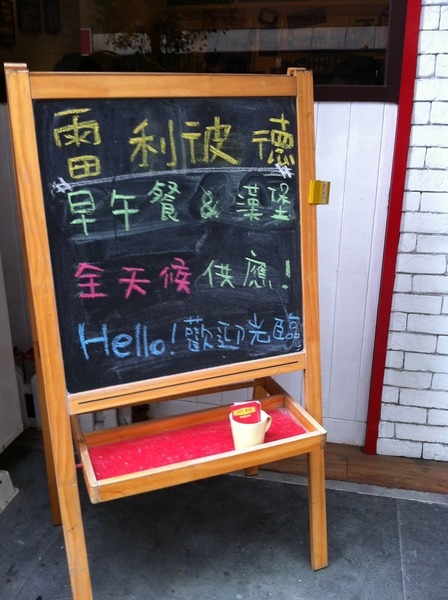 雷利波德
早午餐 & 漢堡
全天候供應!
Hello!歡迎光臨